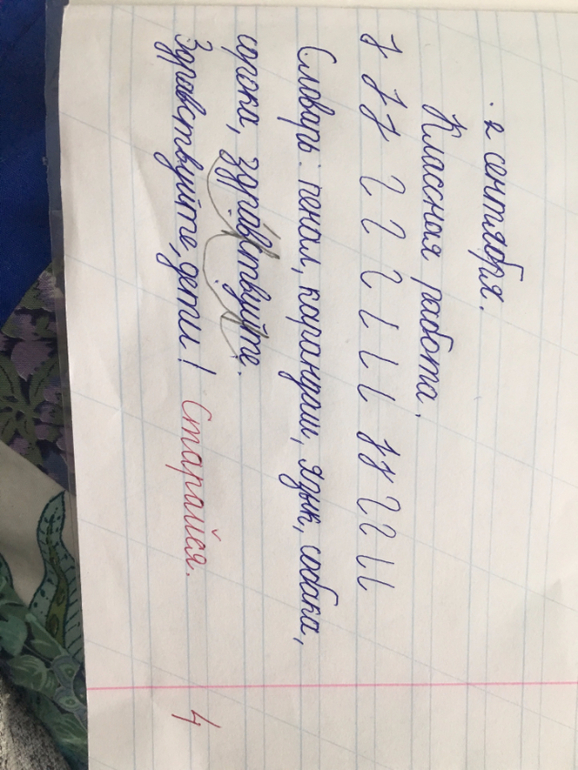 2 сентября.
Классная работа.
Словарь: пенал, карандаш, язык, собака,
сорока, здравствуйте.
Здравствуйте, дети! Старайся.
4